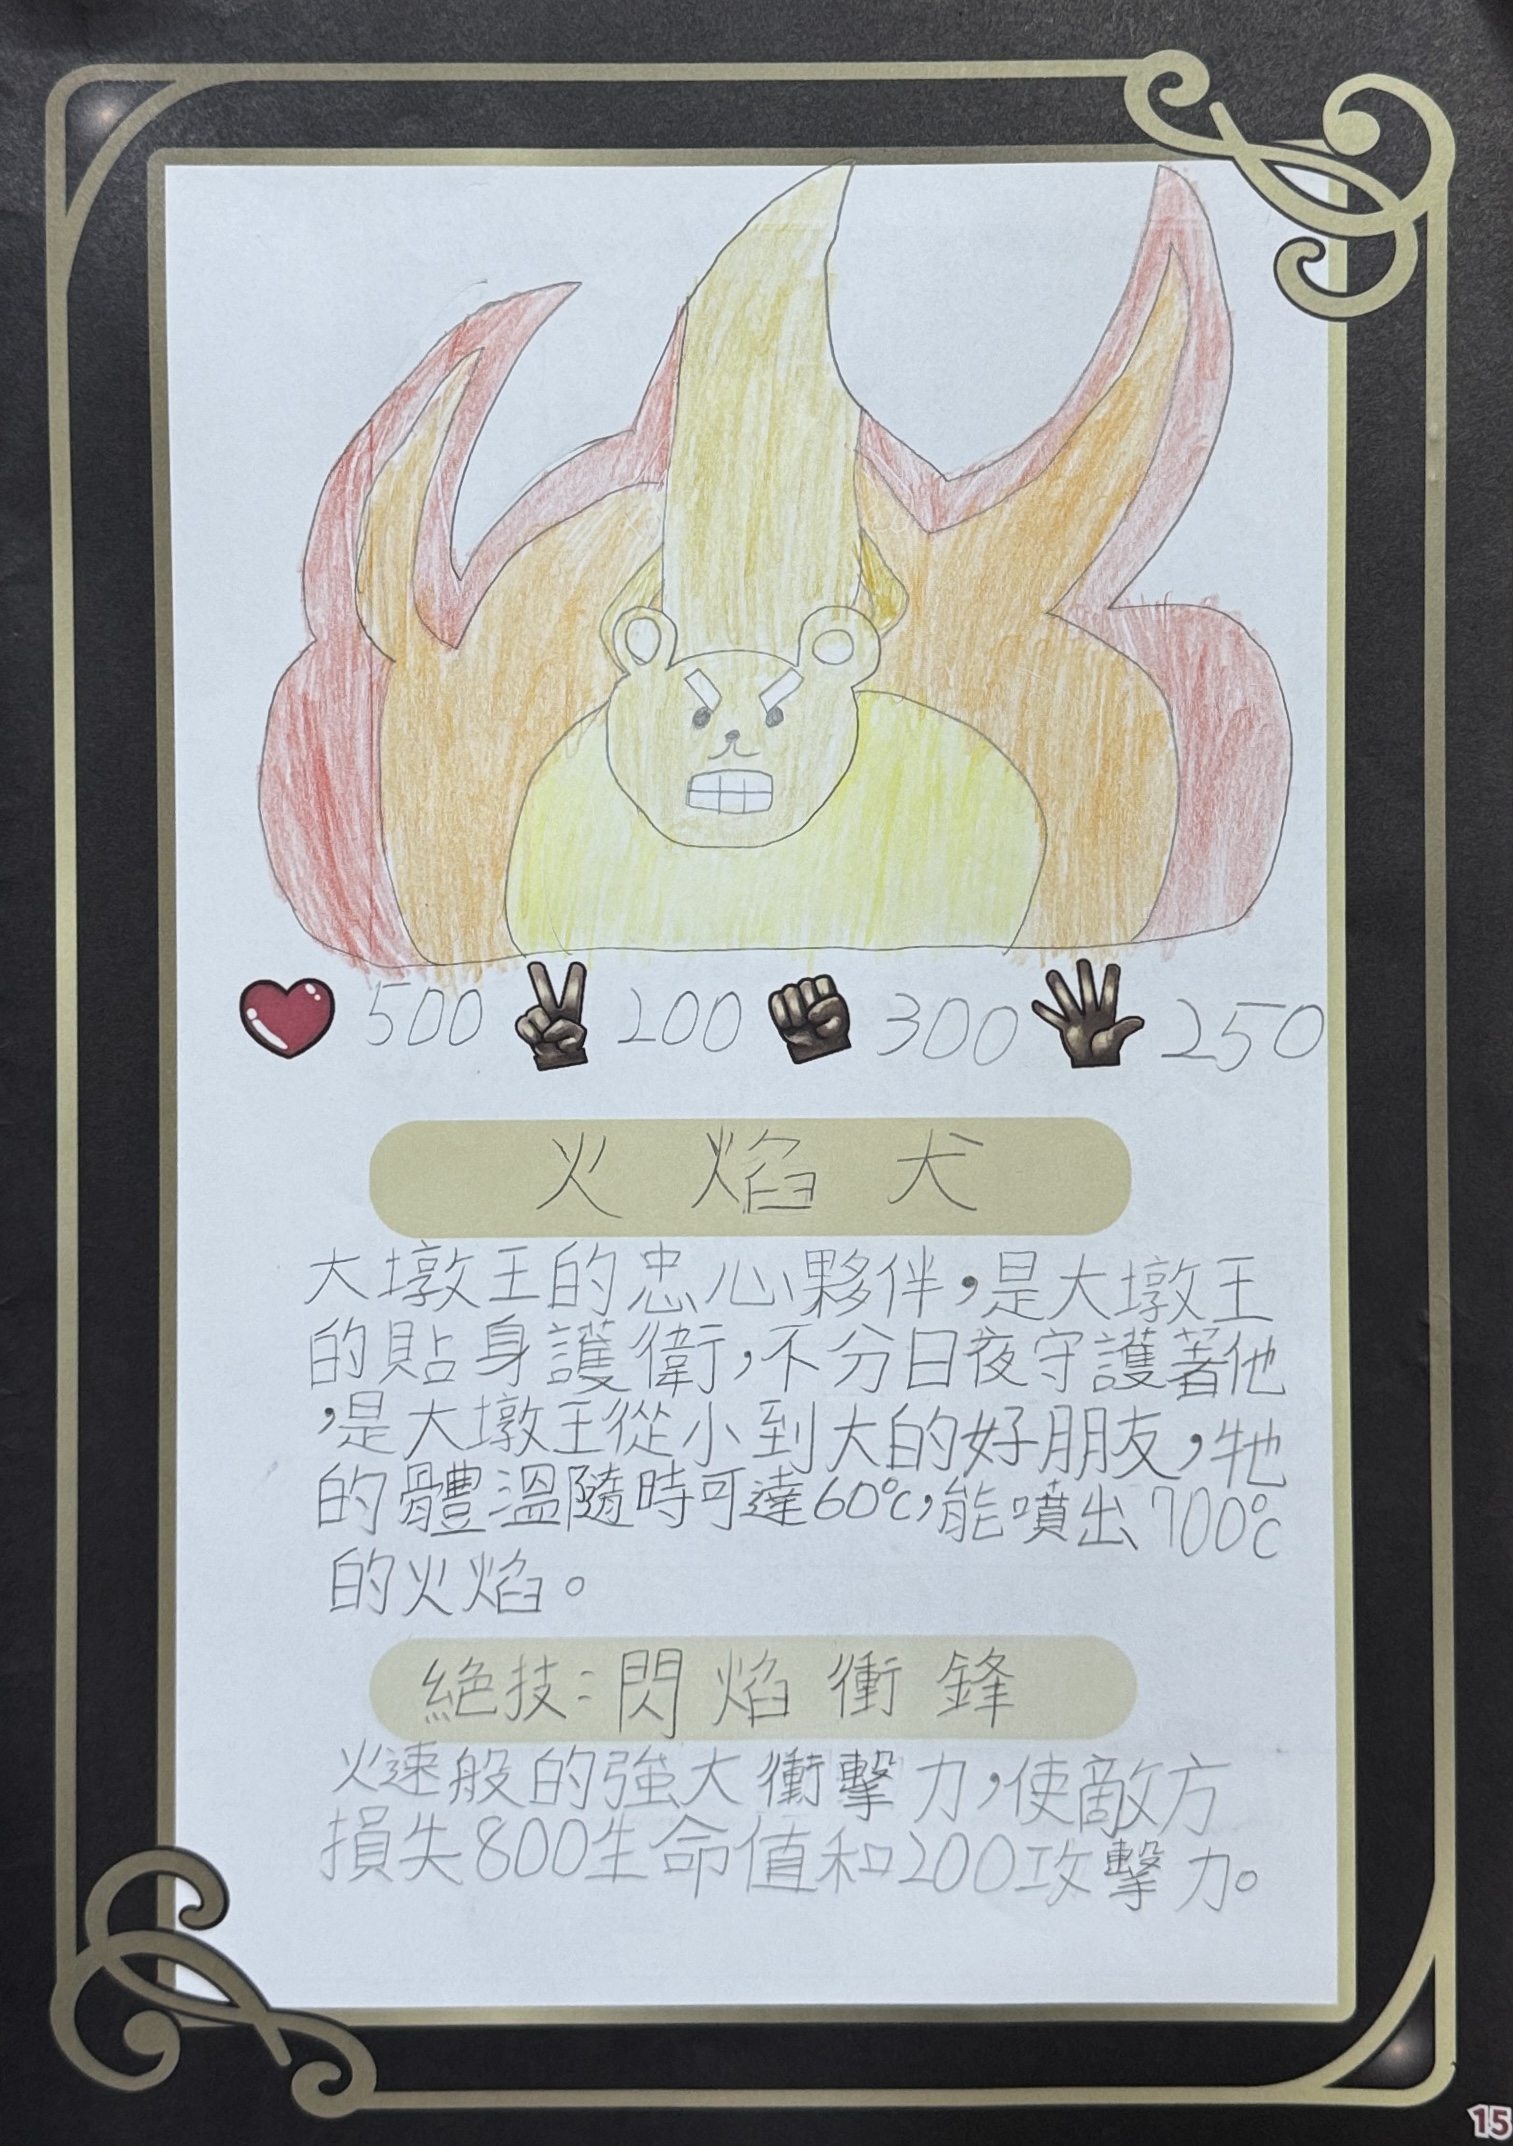 500 200 300 250
火焰犬
大墩王的忠心夥伴，是大墩王
的貼身護衛，不分日夜守護著他
，是大墩王從小到大的好朋友，牠
的體溫隨時可達60℃，能噴出700℃
的火焰。
絕技：閃焰衝鋒
火速般的強大衝擊力，使敵方
損失800生命值和200攻擊力。
15